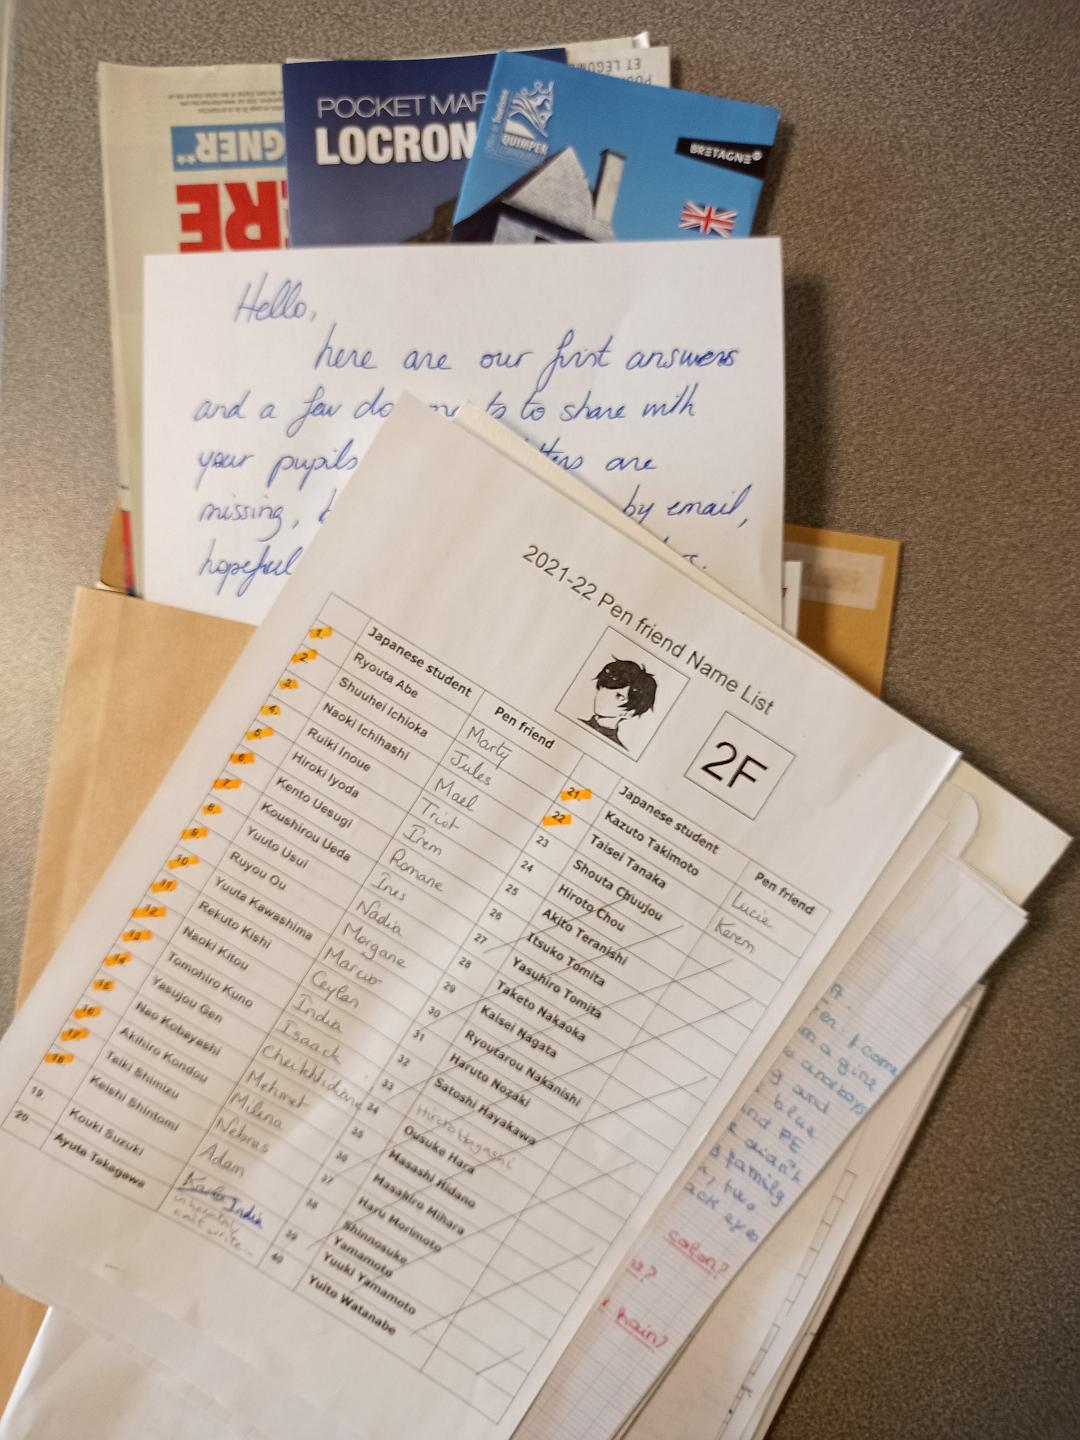 ET LÉGUM
GNER**
ERE
POCKET MAP
LOCRON
Office de Tourisme
QUIMPER
BRETAGNE
Hello,
here are our first answers
and a few do ts to share with
your pupils are
missing, by email,
hopeful
2021-22 Pen friend Name List
2F
Japanese student Pen friend
1. Ryouta Abe Marty
2. Shuuhei Ichioka Jules
3. Naoki Ichihashi Mael
4. Ruiki Inoue
5. Hiroki Iyoda Irem
6. Kento Uesugi Romane
7. Koushirou Ueda Ines
8. Yuuto Usui Nadia
9. Ruyou Ou Morgane
10. Yuuta Kawashima
11. Rekuto Kishi Ceylan
12. Naoki Kitou India
13. Tomohiro Kuno Isaack
14. Yasujou Gen Cheikhtidiane
15. Nao Kobayashi Mehmet
16. Akihiro Kondou Milena
17. Taiki Shimizu Nebras
18. Keishi Shintomi Adam
19. Kouki Suzuki Karla India
20. Ayuta Takagawa in hospital, can't write...
Japanese student Pen friend
21. Kazuto Takimoto Lucie
22. Taisei Tanaka Kerem
23 Shouta Chuujou
24 Hiroto Chou
25 Akito Teranishi
26 Itsuko Tomita
27 Yasuhiro Tomita
28 Taketo Nakaoka
29 Kaisei Nagata
30 Ryoutarou Nakanishi
31 Haruto Nozaki
32 Satoshi Hayakawa
33 Hiroto Hayashi
34 Ousuke Hara
35 Masashi Hidano
36 Masahiro Mihara
37 Haru Morimoto
38 Shinnosuke Yamamoto
39 Yuuki Yamamoto
40 Yuito Watanabe
and
blue
and PE
didn't
family
color?
hair?